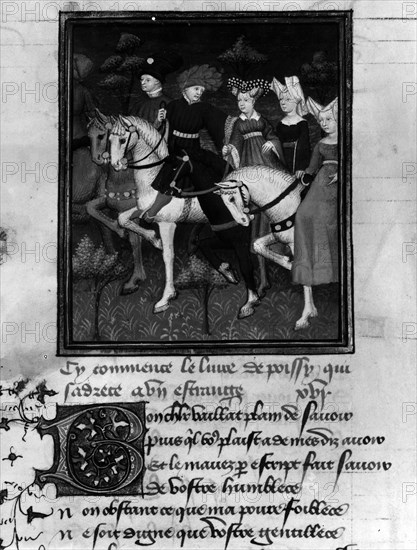 Cy commence le liure de poissy qui
sadrece a vn estrange xviȷ
Bon chlr vaillãt plain de sauoir
Puis q̃l vo⁹ plaist a de mes diz auoir
Et le mauez p escript fait sauoir
de vostre humblece
non obstant ce que ma poure foiblece
ne soit digne que vostre gentillece